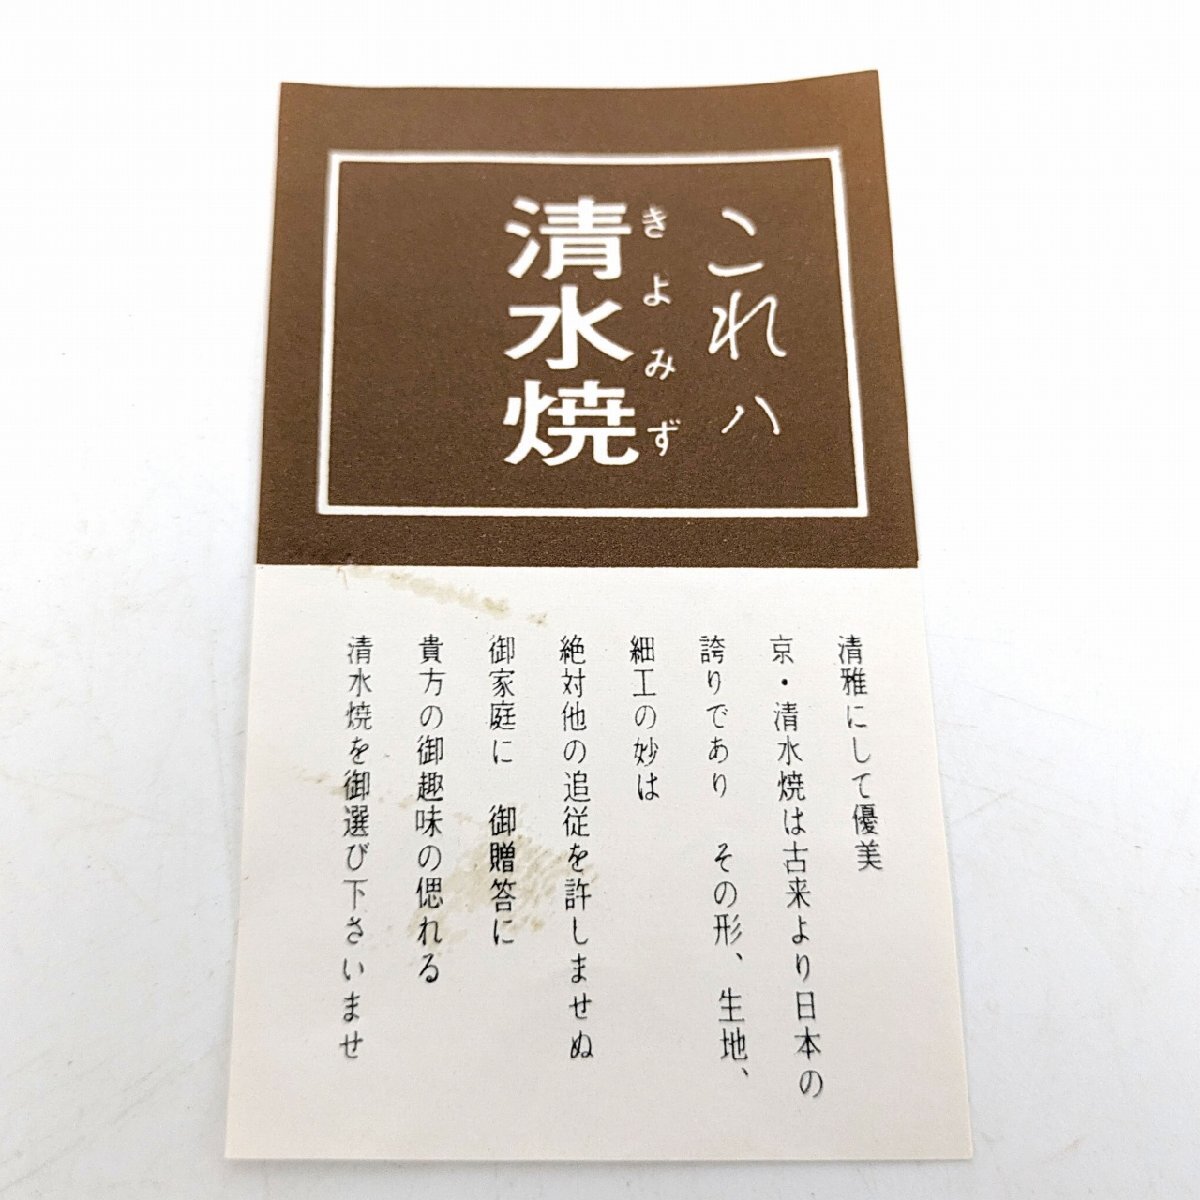 これハ
清水焼
きよみず
清雅にして優美
京・清水焼は古来より日本の
誇りであり その形、生地、
細工の妙は
絶対他の追従を許しませぬ
御家庭に 御贈答に
貴方の御趣味の偲れる
清水焼を御選び下さいませ